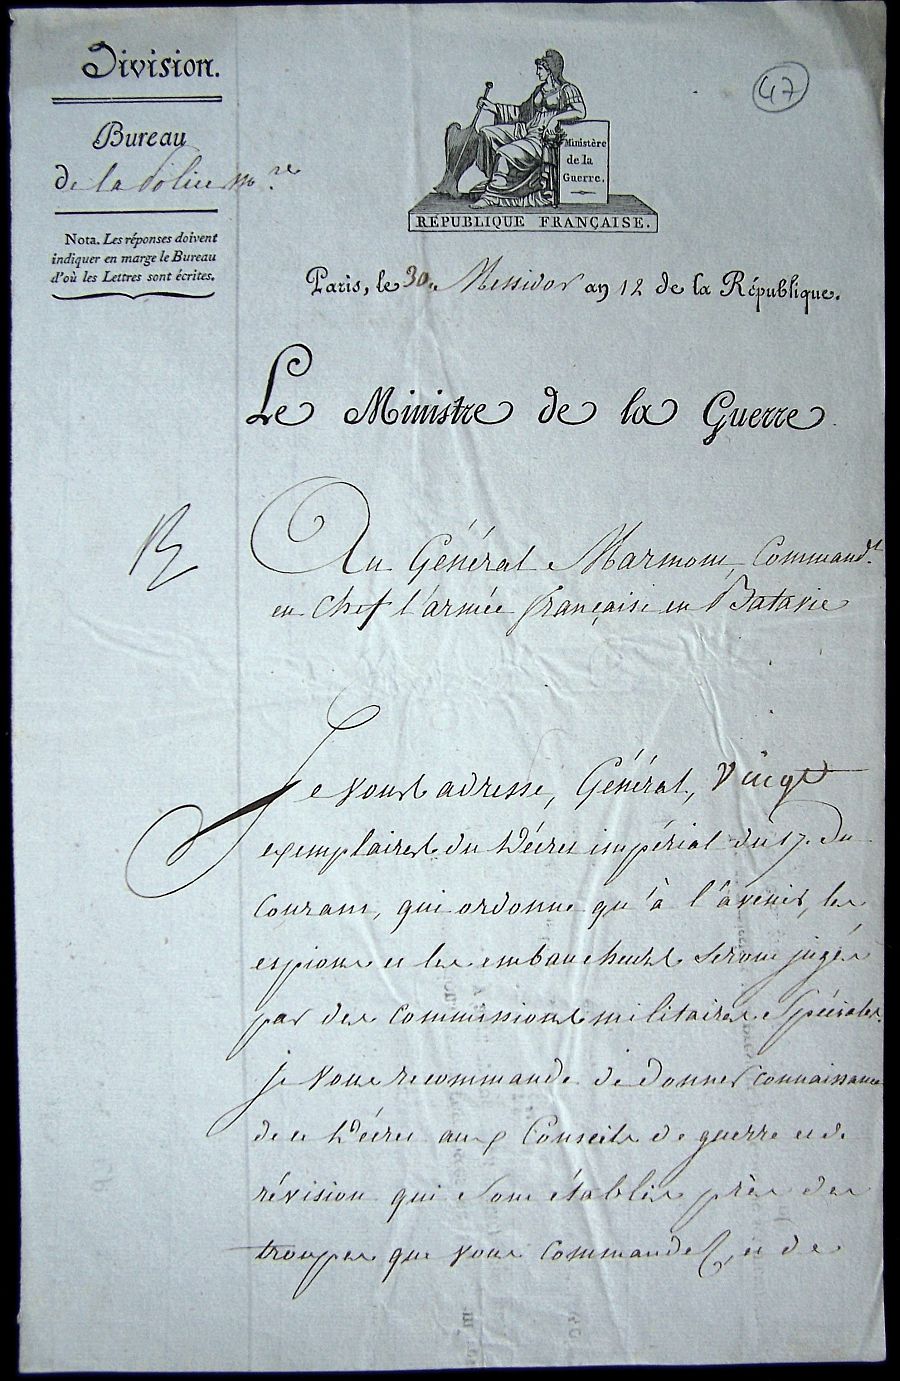 Division.
Bureau
De la Police m.re
Nota. Les réponses doivent
indiquer en marge le Bureau
d'où les Lettres sont écrites.
47
Ministère
de la
Guerre.
RÉPUBLIQUE FRANÇAISE.
Paris, le 30. Messidor an 12 de la République.
Le Ministre de la Guerre
Au Général Marmont, Command.t
en Chef l'armée française en Batavie
Je vous adresse, Général, vingt
exemplaires du Décret impérial du 17. du
courant, qui ordonne qu'à l'avenir, les
espions et les embaucheurs seront jugés
par des commissions militaires spéciales.
je vous recommande de donner connaissance
de ce Décret aux Conseils de guerre et de
révision qui sont établis près des
troupes que vous commandez, et de